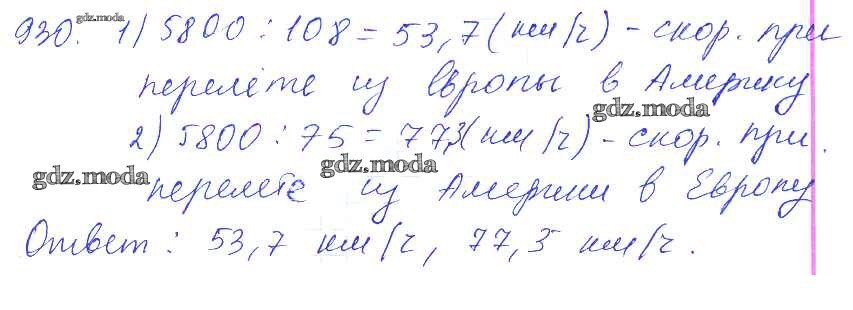 930. gdz.moda 1) 5800 : 108 = 53,7 (км/ч) - скор. при
перелёте из Европы в Америку
gdz.moda
2) 5800 : 75 = 77,3 (км/ч) - скор. при
gdz.moda gdz.moda
перелёте из Америки в Европу
Ответ : 53,7 км/ч, 77,3 км/ч.